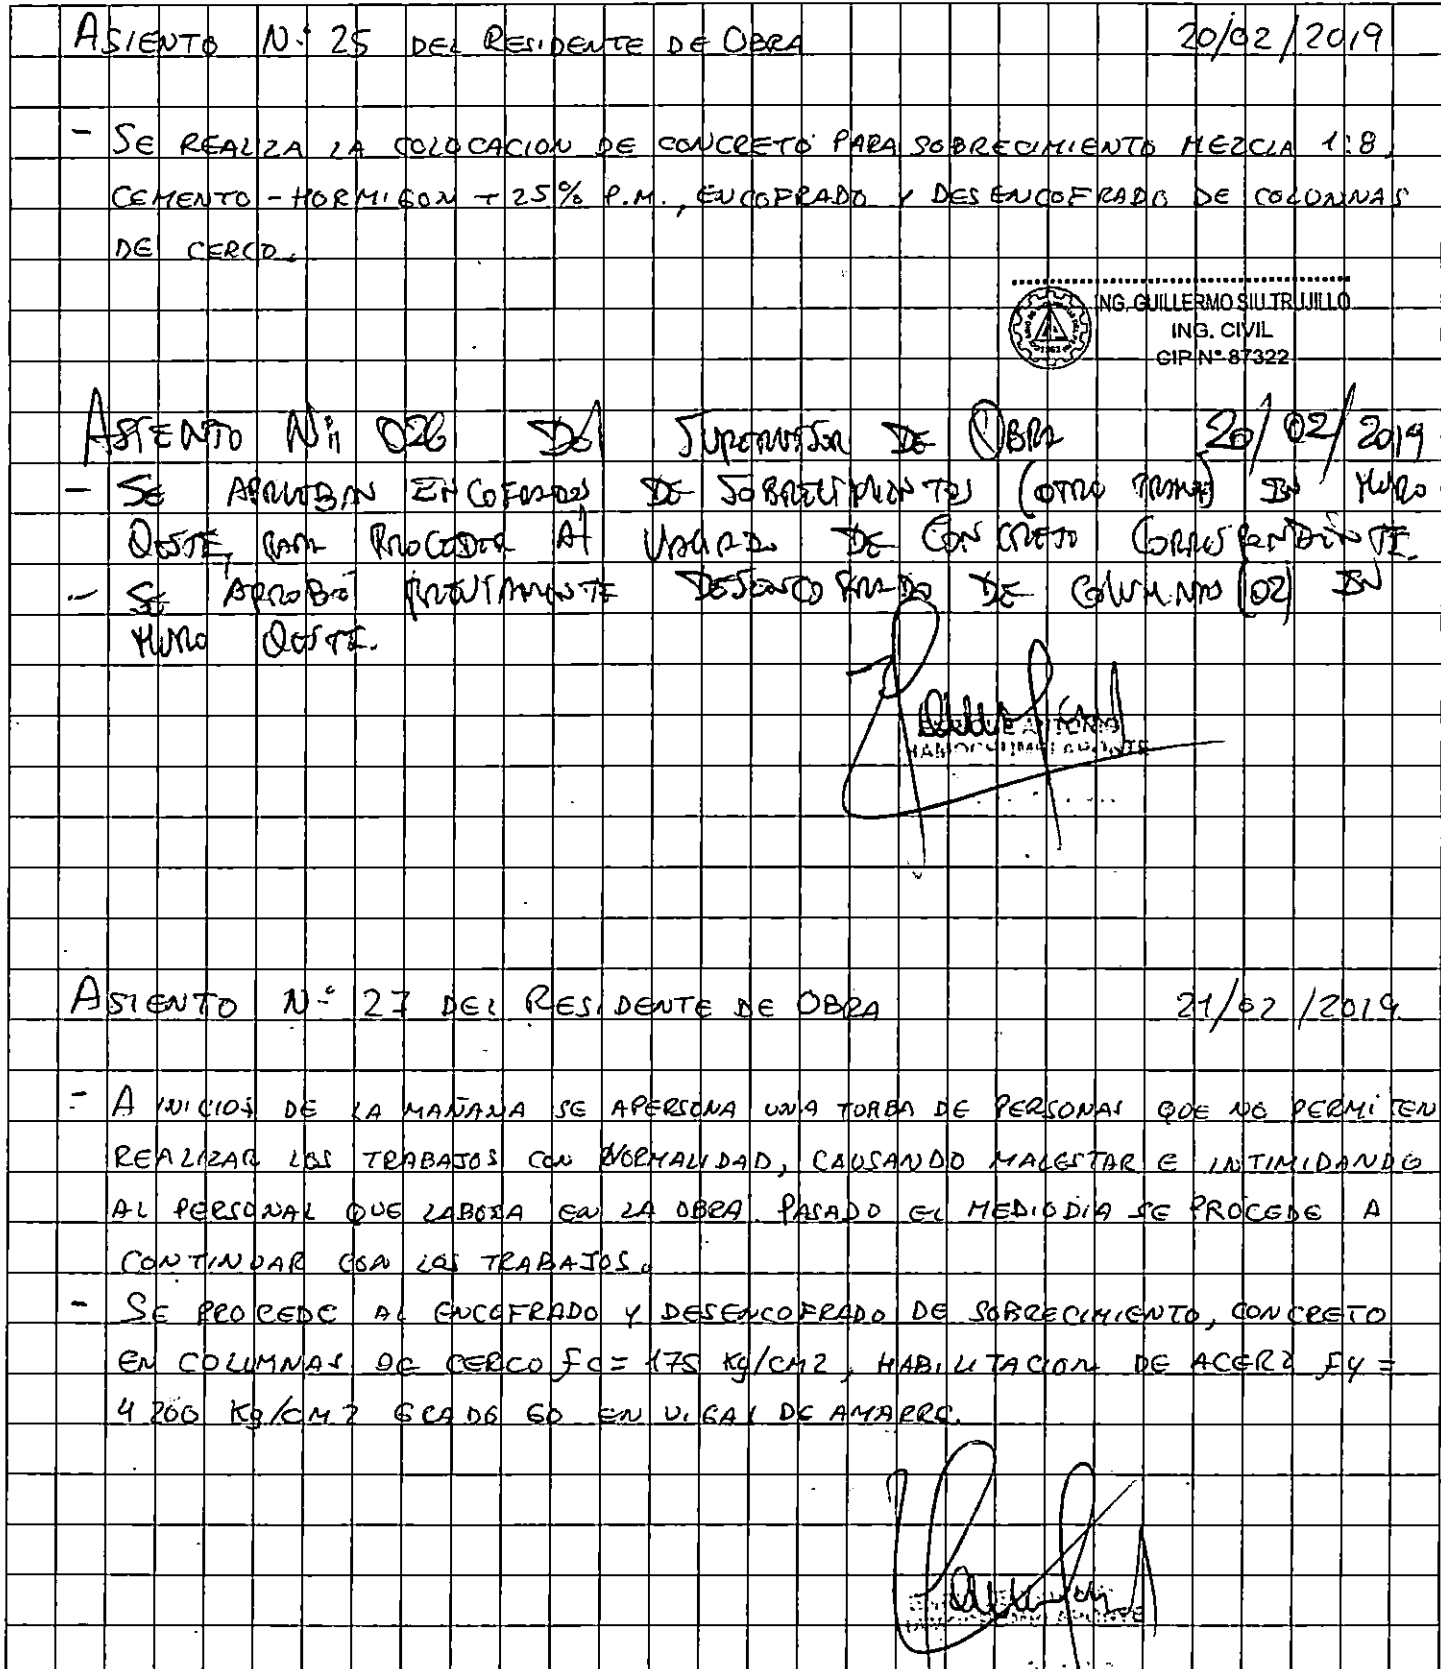 ASIENTO N.º 25 DEL RESIDENTE DE OBRA 20/02/2019
- SE REALIZA LA COLOCACION DE CONCRETO PARA SOBRECIMIENTO MEZCLA 1:8
CEMENTO - HORMIGON + 25% P.M., ENCOFRADO Y DESENCOFRADO DE COLUMNAS
DE CERCO.
ING. GUILLERMO SIU TRUJILLO
ING. CIVIL
CIP Nº 87322
ASIENTO Nº 026 DEL SUPERVISOR DE OBRA 20/02/2019
- SE APRUEBAN ENCOFRADOS DE SOBRECIMIENTOS (OTRO TRAMO) EN MURO
OESTE, PARA PROCEDER AL VACIADO DE CONCRETO CORRESPONDIENTE.
- SE APROBÓ PREVIAMENTE DESENCOFRADO DE COLUMNAS (02) EN
MURO OESTE.
ANTONIO
ASIENTO N.º 27 DEL RESIDENTE DE OBRA 21/02/2019
- A INICIOS DE LA MAÑANA SE APERSONA UNA TORBA DE PERSONAS QUE NO PERMITEN
REALIZAR LOS TRABAJOS CON NORMALIDAD, CAUSANDO MALESTAR E INTIMIDANDO
AL PERSONAL QUE LABORA EN LA OBRA PASADO EL MEDIODIA SE PROCEDE A
CONTINUAR CON LOS TRABAJOS.
- SE PROCEDE AL ENCOFRADO Y DESENCOFRADO DE SOBRECIMIENTO, CONCRETO
EN COLUMNAS DE CERCO FC= 175 Kg/CM2, HABILITACION DE ACERO FY=
4200 Kg/CM2 GRADO 60 EN VIGAS DE AMARRE.